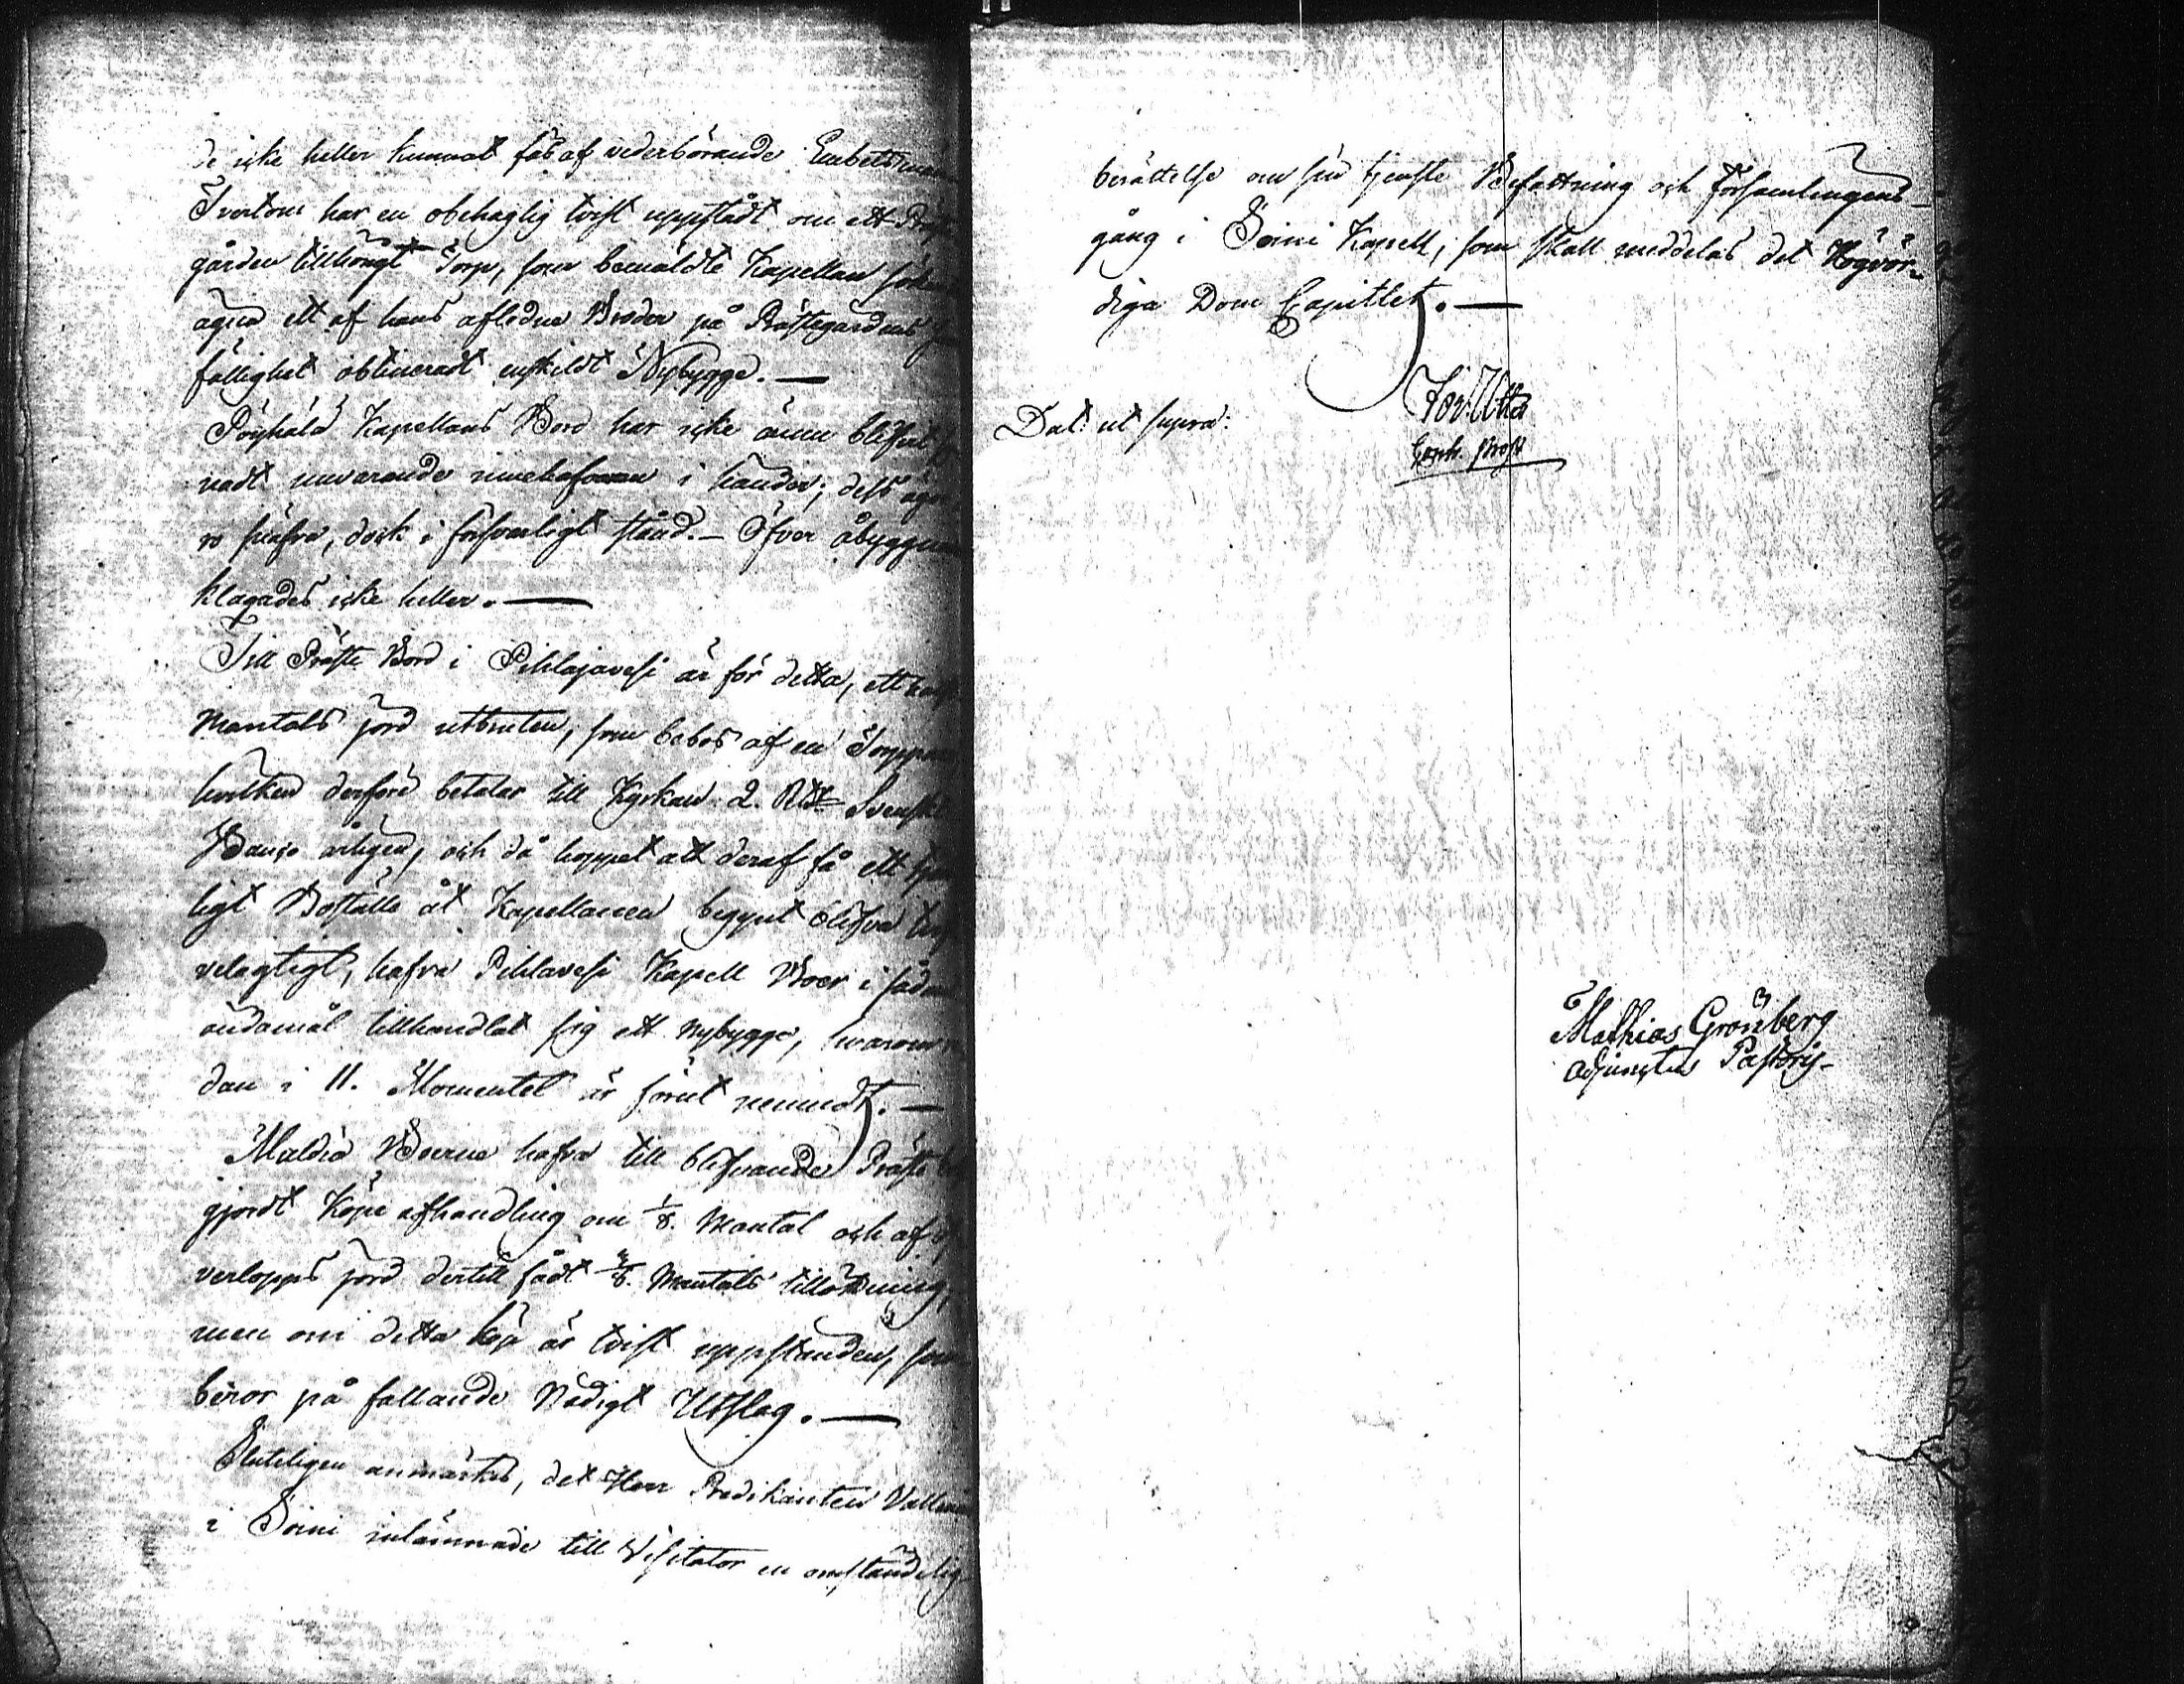 de icke heller kunnat fås af vederbörande Embetsmän
Tvertom har en obehaglig tvist uppstådt om ett Präst
gården tillhörigt Torp, som bemäldte Kapellan
ägna ett af hans afledne Broder på Prästegårdens
fällighet obtineradt enskildt Nybygge. —
Pöyhälä Kapellans Bord har icke ännu blifvit
vadt nuvarande innehafvaren i händer; dess äger
ro sinsra, dock i försvarligt stånd. — Öfver åbyggnaden
klagades icke heller. —
Till Präste Bord i Pihlajavesi är för detta, ett
Mantals jord utbruten, som bebos af en Torppare
hvilken derföre betalar till Kyrkan 2. Rdr Svenskt
Banco årligen, och då hoppet att deraf få ett tjen
ligt Boställe åt Kapellanen begynt blifva
velagtigt, hafva Pihlavesi Kapell Boer i sådant
ändamål tillhandlat sig ett nybygge, hvarom
dan i 11. Momentet är förut nemndt. —
Multia Boerne hafva till blifvande Präste
gjordt Köpe afhandling om 1/8. Mantal och af
verlopps jord dertill fådt 3/8. Mantals tillökning,
men om detta köp är tvist uppstånden, som
beror på fallande Nådigt Utslag. —
Sluteligen anmärktes, det Herr Predikanten
i Soini inlämnade till Visitator en omständelig
berättelse om sin tjenste Befattning och Församlingens
gång i Soini Kapell, som skall meddelas det Högvör-
diga Dom Capitlet. —
Dat: ut supra:
Contr. Prost
Mathias Grönberg
Adjunctus Pastoris.